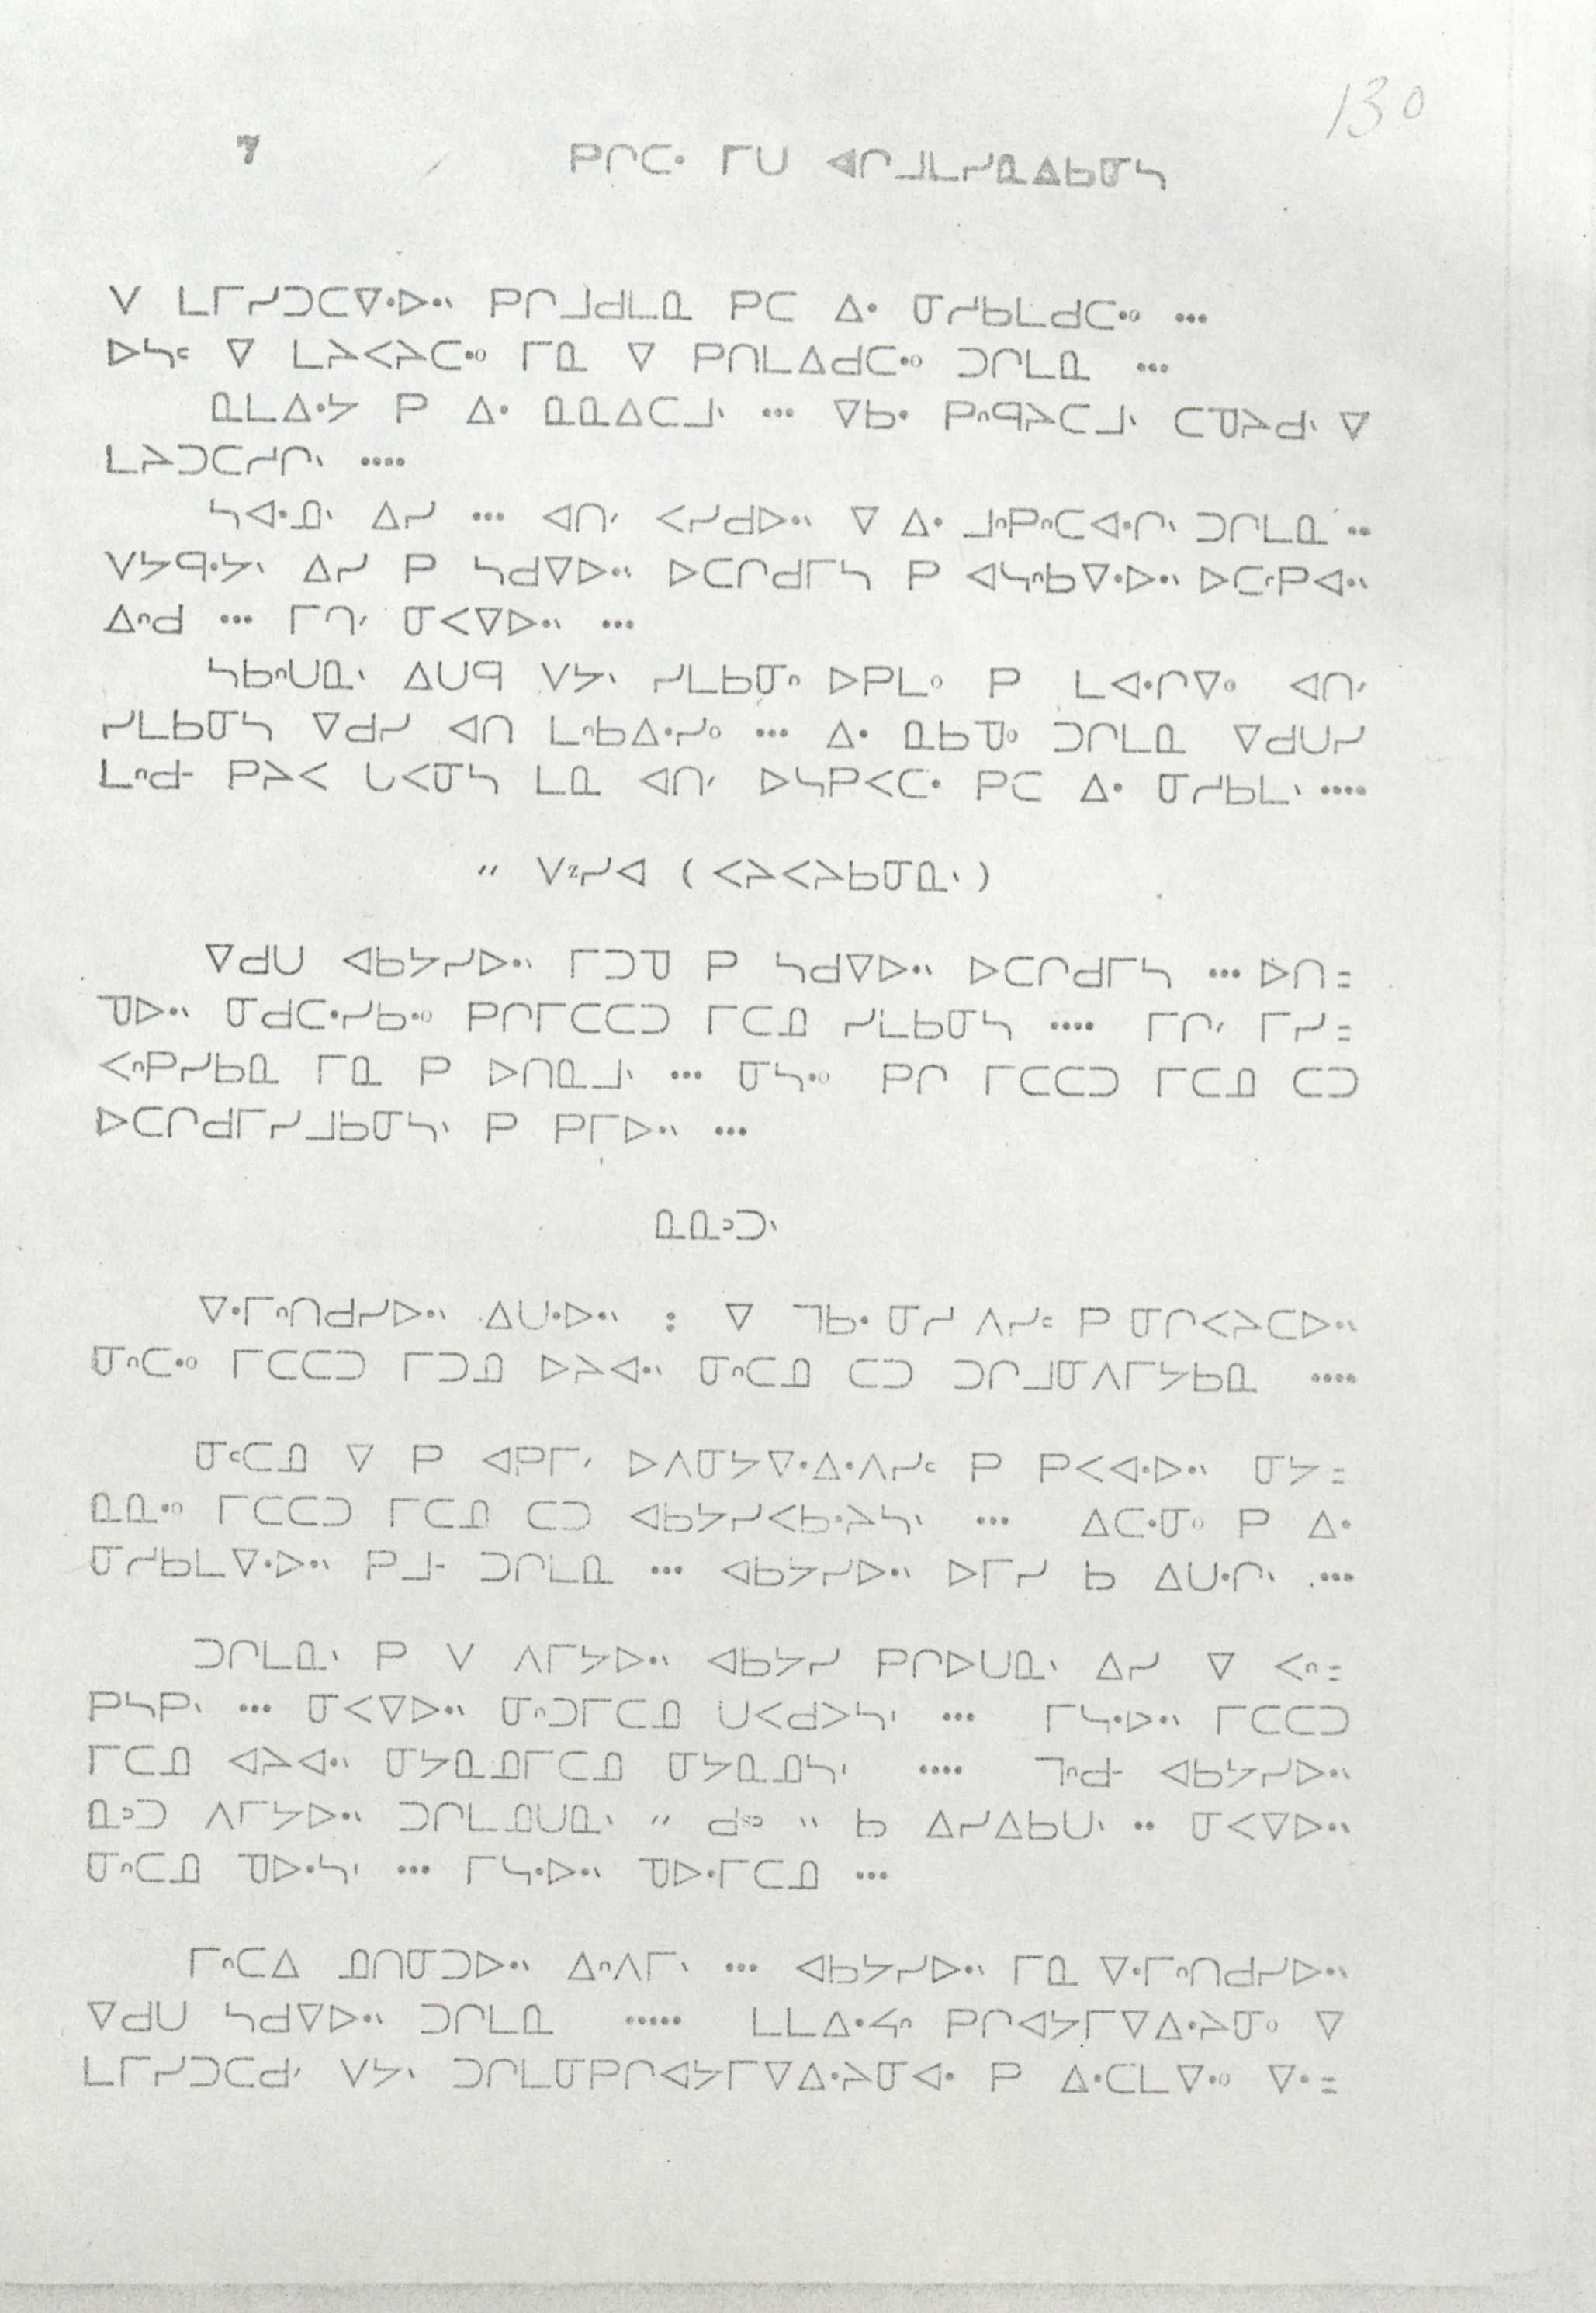 130
7 ᑭᒋᑕᐧ ᒥᑌ ᐊᒋᒧᒪᓯᓇᐃᑲᓂᓴ
ᐯ ᒪᒥᓯᑐᑕᐍᐅᐧᐠ ᑭᒋᒧᑯᒪᓇ ᑭᑕ ᐃᐧ ᓂᓯᑲᒪᑯᑕᐧᐤ ...
ᐅᓴᒼ ᐁ ᒪᔨᐸᔨᑕᐧᐤ ᒥᓇ ᐁ ᑭᑎᒪᐃᑯᑕᐧᐤ ᑐᒋᒪᓇ ...
ᓇᒪᐃᐧᔭ ᑭ ᐃᐧ ᓇᓇᐃᑕᒧᐠ ... ᐁᑲᐧ ᑭᐢᑫᔨᑕᒧᐠ ᑕᓀᔨᑯᐠ ᐁ
ᒪᔨᑐᑕᓱᒋᐠ ....
ᓴᐊᐧᓄᐠ ᐃᓯ ... ᐊᑎᐟ ᐸᓯᑯᐅᐧᐠ ᐁ ᐃᐧ ᒧᐢᑭᐢᑕᐊᐧᒋᐠ ᑐᒋᒪᓇ ..
ᐯᔭᑫᐧᔭᐠ ᐃᓯ ᑭ ᓴᑯᐁᐅᐧᐠ ᐅᑕᒋᑯᒥᓴ ᑭ ᐊᓴᐢᑲᐍᐅᐧᐠ ᐅᑕᐢᑭᐊᐧᐠ
ᐃᐢᑯ ... ᒥᒉᐟ ᓂᐸᐁᐅᐧᐠ ...
ᓴᑲᐢᑌᓇᐠ ᐃᑌᑫ ᐯᔭᐠ ᓯᒪᑲᓂᐢ ᐅᑭᒪᐤ ᑭ ᒪᐊᐧᒋᐁᐤ ᐊᑎᐟ
ᓯᒪᑲᓂᓴ ᐁᑯᓯ ᐊᑎ ᒪᐢᑲᐃᐧᓯᐤ ... ᐃᐧ ᓇᑲᓀᐤ ᑐᒋᒪᓇ ᐁᑯᑌᓯ
ᒪᐢᑯᐨ ᑭᔨᐸ ᑌᐸᓂᓴ ᒪᓇ ᐊᑎᐟ ᐅᓴᑭᐸᑕᐧ ᑭᑕ ᐃᐧ ᓂᓯᑲᒪᐠ ....
" ᐯᙆᓯᐊ ( ᐸᔨᐸᔨᑲᓂᓇᐠ )
ᐁᑯᑌ ᐊᑲᔭᓯᐅᐧᐠ ᒥᑐᓀ ᑭ ᓴᑯᐁᐅᐧᐠ ᐅᑕᒋᑯᒥᓴ ... ᐅᑎ=
ᓀᐅᐧᐠ ᓂᑯᑕᐧᓯᑲᐧᐤ ᑭᒋᒥᑕᑕᑐ ᒥᑕᓄ ᓯᒪᑲᓂᓴ .... ᒥᒋᐟ ᒥᓯ=
ᐸᐢᑭᓯᑲᓇ ᒥᓇ ᑭ ᐅᑎᓇᒧᐠ ... ᓂᓴᐧᐤ ᑭᒋ ᒥᑕᑕᑐ ᒥᑕᓄ ᑕᑐ
ᐅᑕᒋᑯᒥᓯᒧᑲᓂᓴᐠ ᑭ ᑭᒥᐅᐧᐠ ...
ᓇᓇᐣᑐᐠ
ᐍᒥᐢᑎᑯᓯᐅᐧᐠ ᐃᑌᐧᐅᐧᐠ : ᐁ ᒣᑲᐧ ᓂᓯ ᐱᓯᒼ ᑭ ᓂᒋᐸᔨᑕᐅᐧᐠ
ᓂᐢᑕᐧᐤ ᒥᑕᑕᑐ ᒥᑐᓄ ᐅᔨᐊᐧᐠ ᓂᐢᑕᓄ ᑕᑐ ᑐᒋᒧᓂᐱᒥᔭᑲᓇ ....
ᓂᒼᑕᓄ ᐁ ᑭ ᐊᑭᒥᐟ ᐅᐱᓂᔭᐍᐃᐧᐱᓯᒼ ᑭ ᑭᐸᐊᐧᐅᐧᐠ ᓂᔭ=
ᓇᓇᐧᐤ ᒥᑕᑕᑐ ᒥᑕᓄ ᑕᑐ ᐊᑲᔭᓯᐸᑲᐧᔨᓴᐠ ... ᐃᑕᐧᓂᐤ ᑭ ᐃᐧ
ᓂᓯᑲᒪᐍᐅᐧᐠ ᑭᒧᐨ ᑐᒋᒪᓇ ... ᐊᑲᔭᓯᐅᐧᐠ ᐅᒥᓯ ᑲ ᐃᑌᐧᒋᐠ ...
ᑐᒋᒪᓇᐠ ᑭ ᐯ ᐱᒥᔭᐅᐧᐠ ᐊᑲᔭᓯ ᑭᒋᐅᑌᓇᐠ ᐃᓯ ᐁ ᐸᐢ=
ᑭᓴᑭᐠ ... ᓂᐸᐁᐅᐧᐠ ᓂᐢᑐᒥᑕᓄ ᑌᐸᑯᐳᓴᐠ ... ᒥᓴᐧᐅᐧᐠ ᒥᑕᑕᑐ
ᒥᑕᓄ ᐊᔨᐊᐧᐠ ᓂᔭᓇᓄᒥᑕᓄ ᓂᔭᓇᓄᓴᐠ .... ᒣᐢᑯᐨ ᐊᑲᔭᓯᐅᐧᐠ
ᓇᐣᑐ ᐱᒥᔭᐅᐧᐠ ᑐᒋᒪᓄᑌᓇᐠ " ᑯᓫᐣ " ᑲ ᐃᓯᐃᑲᑌᐠ .. ᓂᐸᐁᐅᐧᐠ
ᓂᐢᑕᓄ ᓀᐅᐧᓴᐠ ... ᒥᓴᐧᐅᐧᐠ ᓀᐅᐧᒥᑕᓄ ...
ᒥᐢᑕᐃ ᓄᑎᓂᑐᐅᐧᐠ ᐃᐢᐱᒥᐠ ... ᐊᑲᔭᓯᐅᐧᐠ ᒥᓇ ᐍᒥᐢᑎᑯᓯᐅᐧᐠ
ᐁᑯᑌ ᓴᑯᐁᐅᐧᐠ ᑐᒋᒪᓇ ..... ᒪᒪᐃᐧᔦᐢ ᑭᒋᐊᔭᒥᐁᐃᐧᔨᓂᐤ ᐁ
ᒪᒥᓯᑐᑕᑯᐟ ᐯᔭᐠ ᑐᒋᒪᓂᑭᒋᐊᔭᒥᐁᐃᐧᔨᓂᐊᐧ ᑭ ᐃᐧᑕᒪᐍᐤ ᐍ=